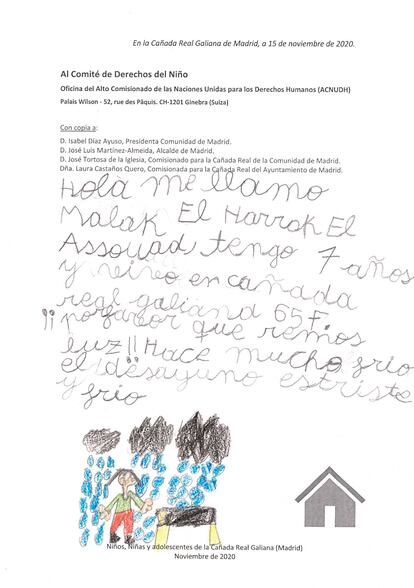 En la Cañada Real Galiana de Madrid, a 15 de noviembre de 2020.
Al Comité de Derechos del Niño
Oficina del Alto Comisionado de las Naciones Unidas para los Derechos Humanos (ACNUDH)
Palais Wilson - 52, rue des Pâquis. CH-1201 Ginebra (Suiza)
Con copia a:
D. Isabel Díaz Ayuso, Presidenta Comunidad de Madrid.
D. José Luis Martínez-Almeida, Alcalde de Madrid.
D. José Tortosa de la Iglesia, Comisionado para la Cañada Real de la Comunidad de Madrid.
Dña. Laura Castaños Quero, Comisionada para la Cañada Real del Ayuntamiento de Madrid.
Hola me llamo
Malak El Harrak El
Assouad tengo 7 años
y vivo en cañada
real galiana 65 F
¡¡ por favor que remos
luz!! Hace mucho frio
el desayuno es triste
y frio
Niños, Niñas y adolescentes de la Cañada Real Galiana (Madrid)
Noviembre de 2020